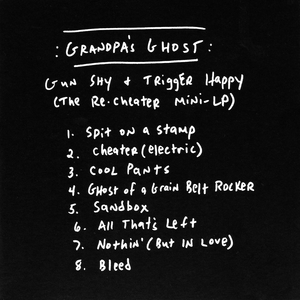 : GRANDPA'S GHOST :
GUN SHY & TRIGGER HAPPY
(THE RE-CHEATER MINI-LP)
1. Spit on a Stamp
2. Cheater (electric)
3. Cool Pants
4. Ghost of a Grain Belt Rocker
5. Sandbox
6. All That's Left
7. Nothin' (But IN Love)
8. Bleed